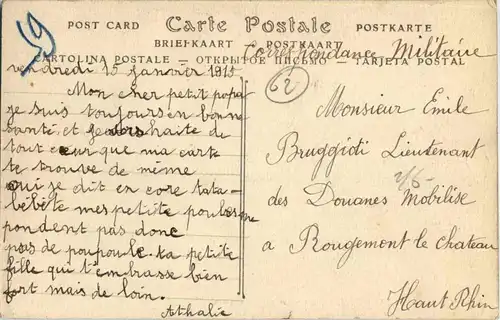 POST CARD Carte Postale POSTKARTE
BRIEFKAART POSTKAART
CARTOLINA POSTALE — ОТКРЫТОЕ ПИСЬМО — TARJETA POSTAL
59
Correspondance Militaire
62
vendredi 15 janvier 1915
Mon cher petit papa
je suis toujours en bonne
santé et je souhaite de
tout cœur que ma carte
te trouve de même
qui je dit en core tata-
bébête mes petite poules me
pondent pas donc
pas de poupoule. ta petite
fille qui t'embrasse bien
fort mais de loin.
Athalie
Monsieur Emile
Bruggidi Lieutenant
des Douanes Mobilisé
a Rougemont le chateau
Haut Rhin